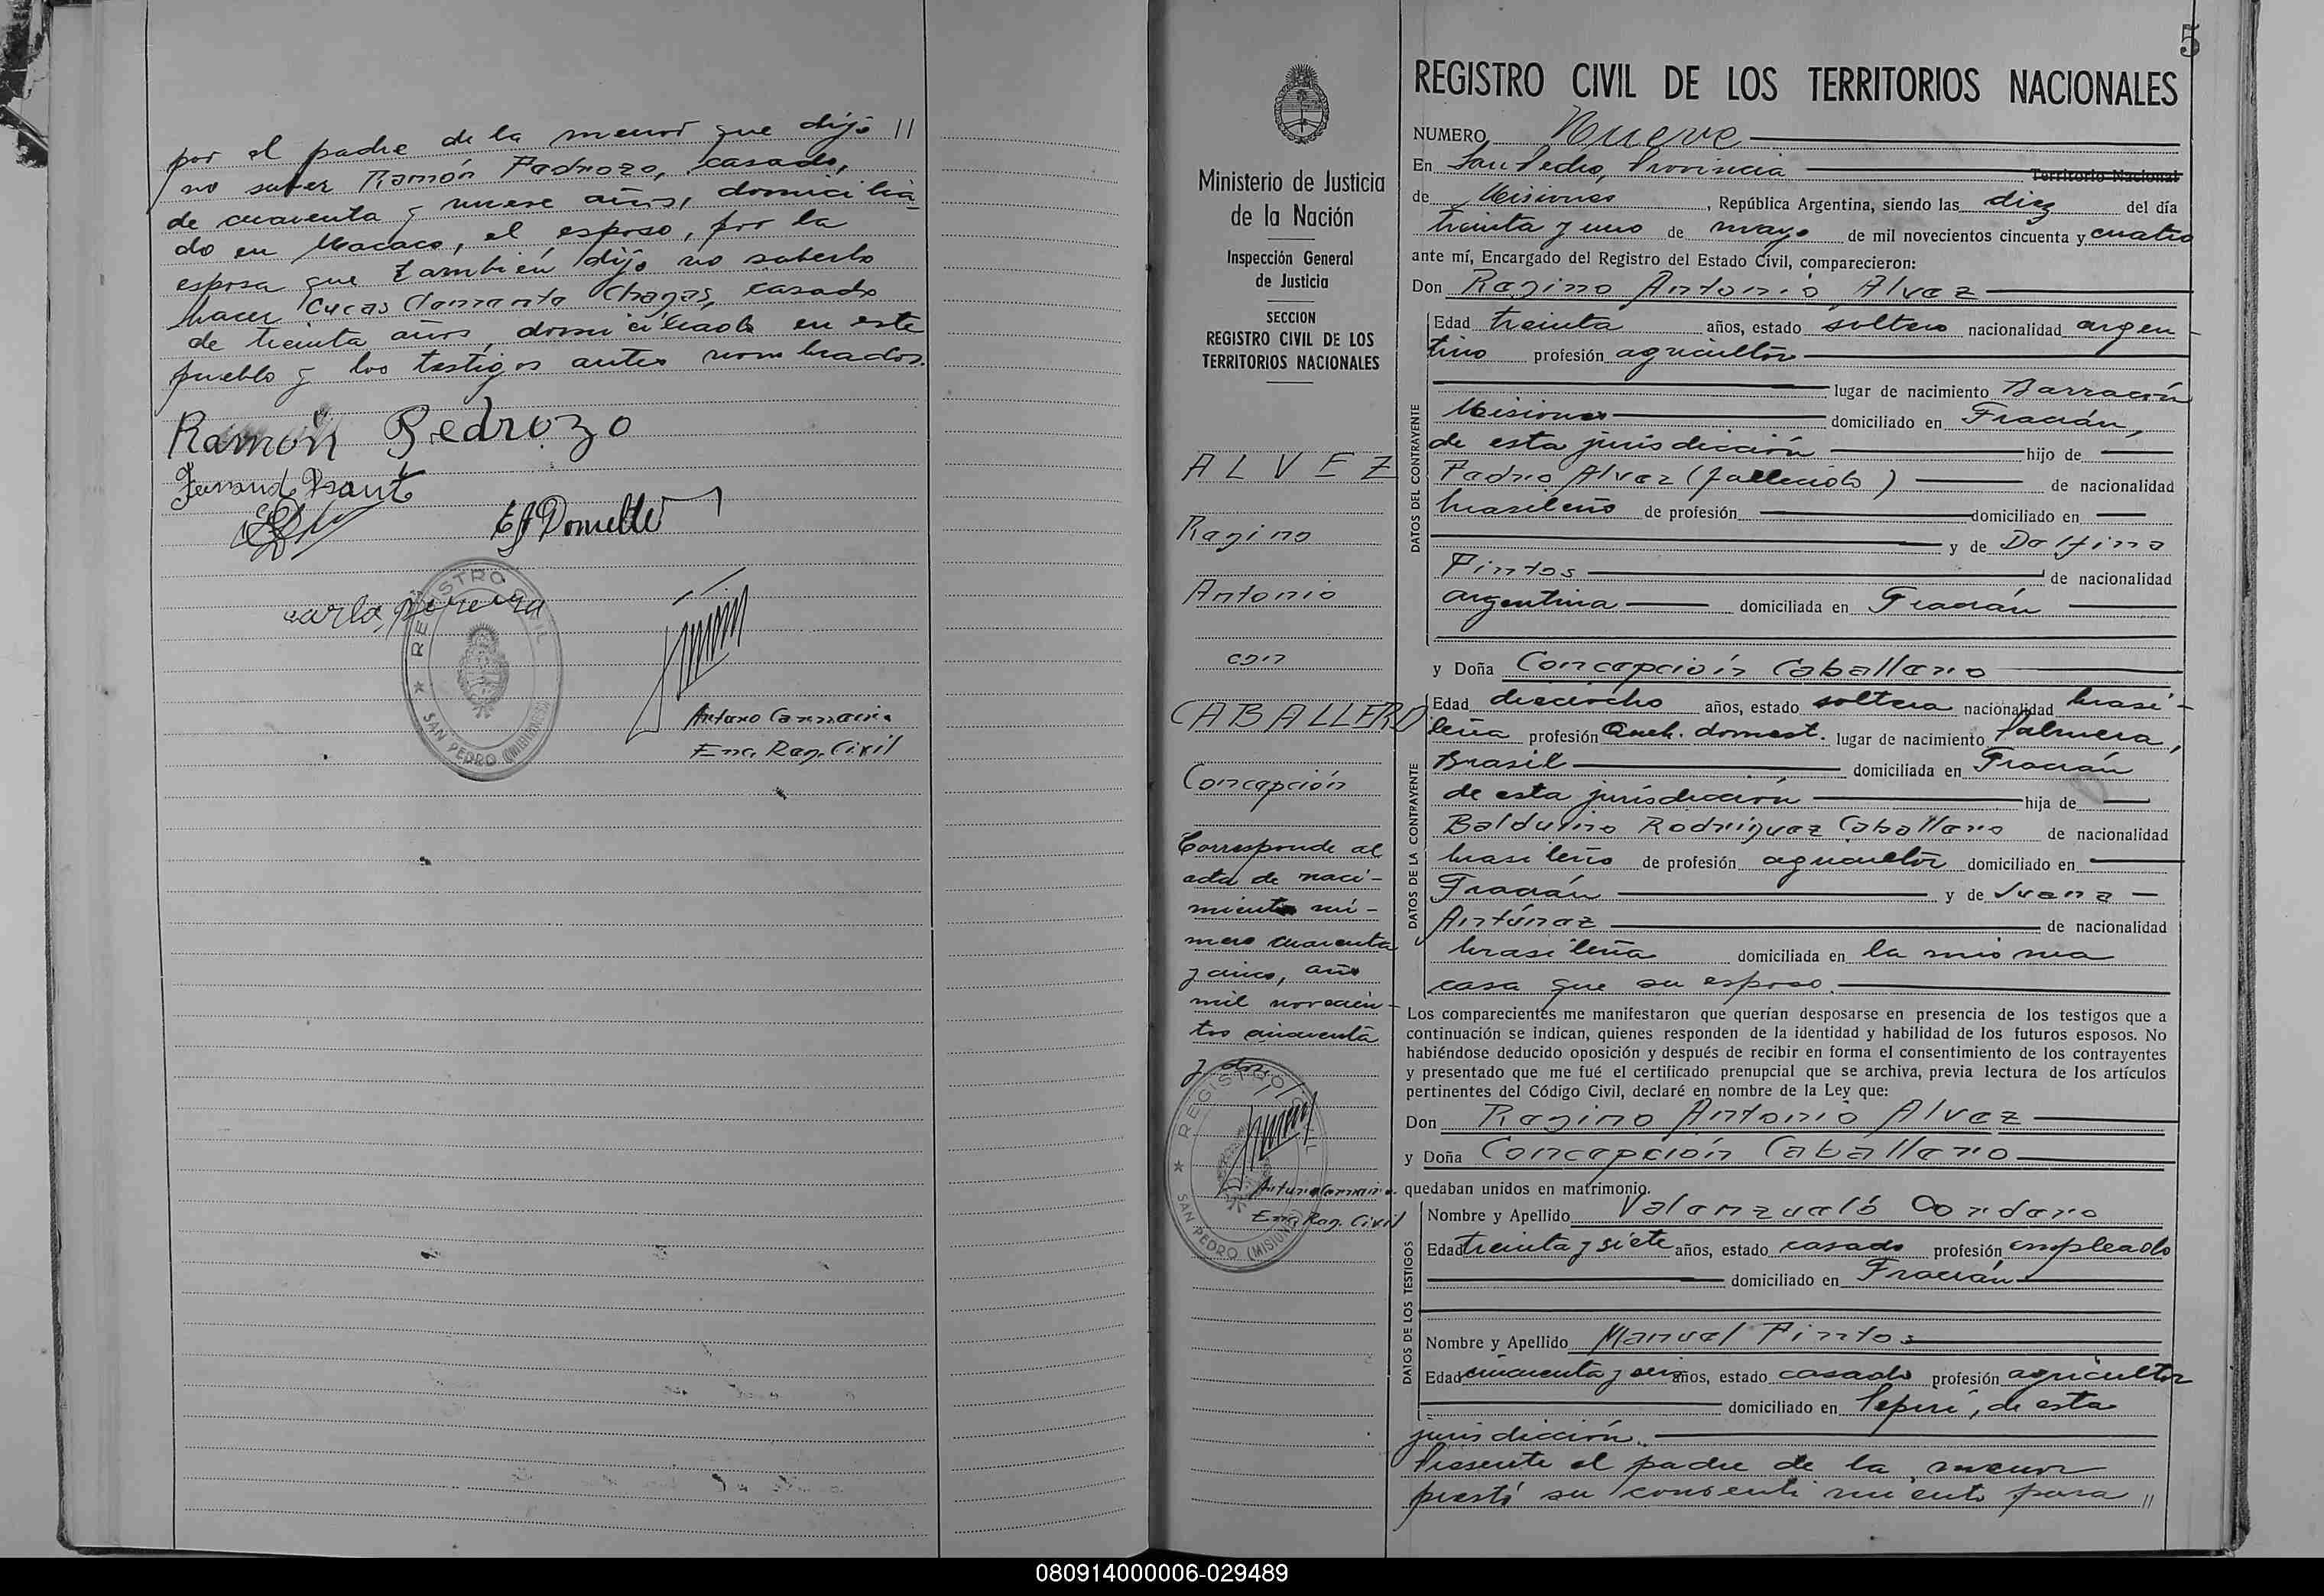 por el padre de la menor que dijo //
no saber Ramón Pedrozo, casado,
de cuarenta y nueve años, domicilia-
do en Macaco, el esposo, por la
esposa que también dijo no saberlo
hacer Lucas Clemente Chagas, casado
de treinta años, domiciliado en este
pueblo y los testigos antes nombrados.
Ramón Pedrozo
carlos pereira
REGISTRO CIVIL
★ SAN PEDRO (MISIONES)
Enc. Reg. Civil
5
Ministerio de Justicia
de la Nación
Inspección General
de Justicia
SECCION
REGISTRO CIVIL DE LOS
TERRITORIOS NACIONALES
ALVEZ
Regino
Antonio
con
CABALLERO
Concepción
Corresponde al
acta de naci-
miento nú-
mero cuarenta
y cinco, año
mil novecien-
tos cincuenta
y dos.
REGISTRO CIVIL
★ SAN PEDRO (MISIONES)
Enc. Reg. Civil
REGISTRO CIVIL DE LOS TERRITORIOS NACIONALES
NUMERO Nueve
En San Pedro, Provincia Territorio Nacional
de Misiones, República Argentina, siendo las diez del día
treinta y uno de mayo de mil novecientos cincuenta y cuatro
ante mí, Encargado del Registro del Estado Civil, comparecieron:
Don Regino Antonio Alvez
DATOS DEL CONTRAYENTE
Edad treinta años, estado soltero nacionalidad argen-
tino profesión agricultor
lugar de nacimiento Barracón
Misiones domiciliado en Fracrán,
de esta jurisdicción hijo de
Pedro Alvez (fallecido) de nacionalidad
brasileño de profesión domiciliado en
y de Delfina
Pintos de nacionalidad
argentina domiciliada en Fracrán
y Doña Concepción Caballero
DATOS DE LA CONTRAYENTE
Edad dieciocho años, estado soltera nacionalidad brasi-
leña profesión Queh. domest. lugar de nacimiento Palmera,
Brasil domiciliada en Fracrán
de esta jurisdicción hija de
Balduino Rodríguez Caballero de nacionalidad
brasileño de profesión agricultor domiciliado en
Fracrán y de Juana
Antúnez de nacionalidad
brasileña domiciliada en la misma
casa que su esposo.
Los comparecientes me manifestaron que querían desposarse en presencia de los testigos que a
continuación se indican, quienes responden de la identidad y habilidad de los futuros esposos. No
habiéndose deducido oposición y después de recibir en forma el consentimiento de los contrayentes
y presentado que me fué el certificado prenupcial que se archiva, previa lectura de los artículos
pertinentes del Código Civil, declaré en nombre de la Ley que:
Don Regino Antonio Alvez
y Doña Concepción Caballero
quedaban unidos en matrimonio.
DATOS DE LOS TESTIGOS
Nombre y Apellido Cordero
Edad treinta y siete años, estado casado profesión empleado
domiciliado en Fracrán
Nombre y Apellido Manuel Pintos
Edad cincuenta y seis años, estado casado profesión agricultor
domiciliado en Pepirí, de esta
jurisdicción.
Presente el padre de la menor
prestó su consentimiento para //
080914000006-029489